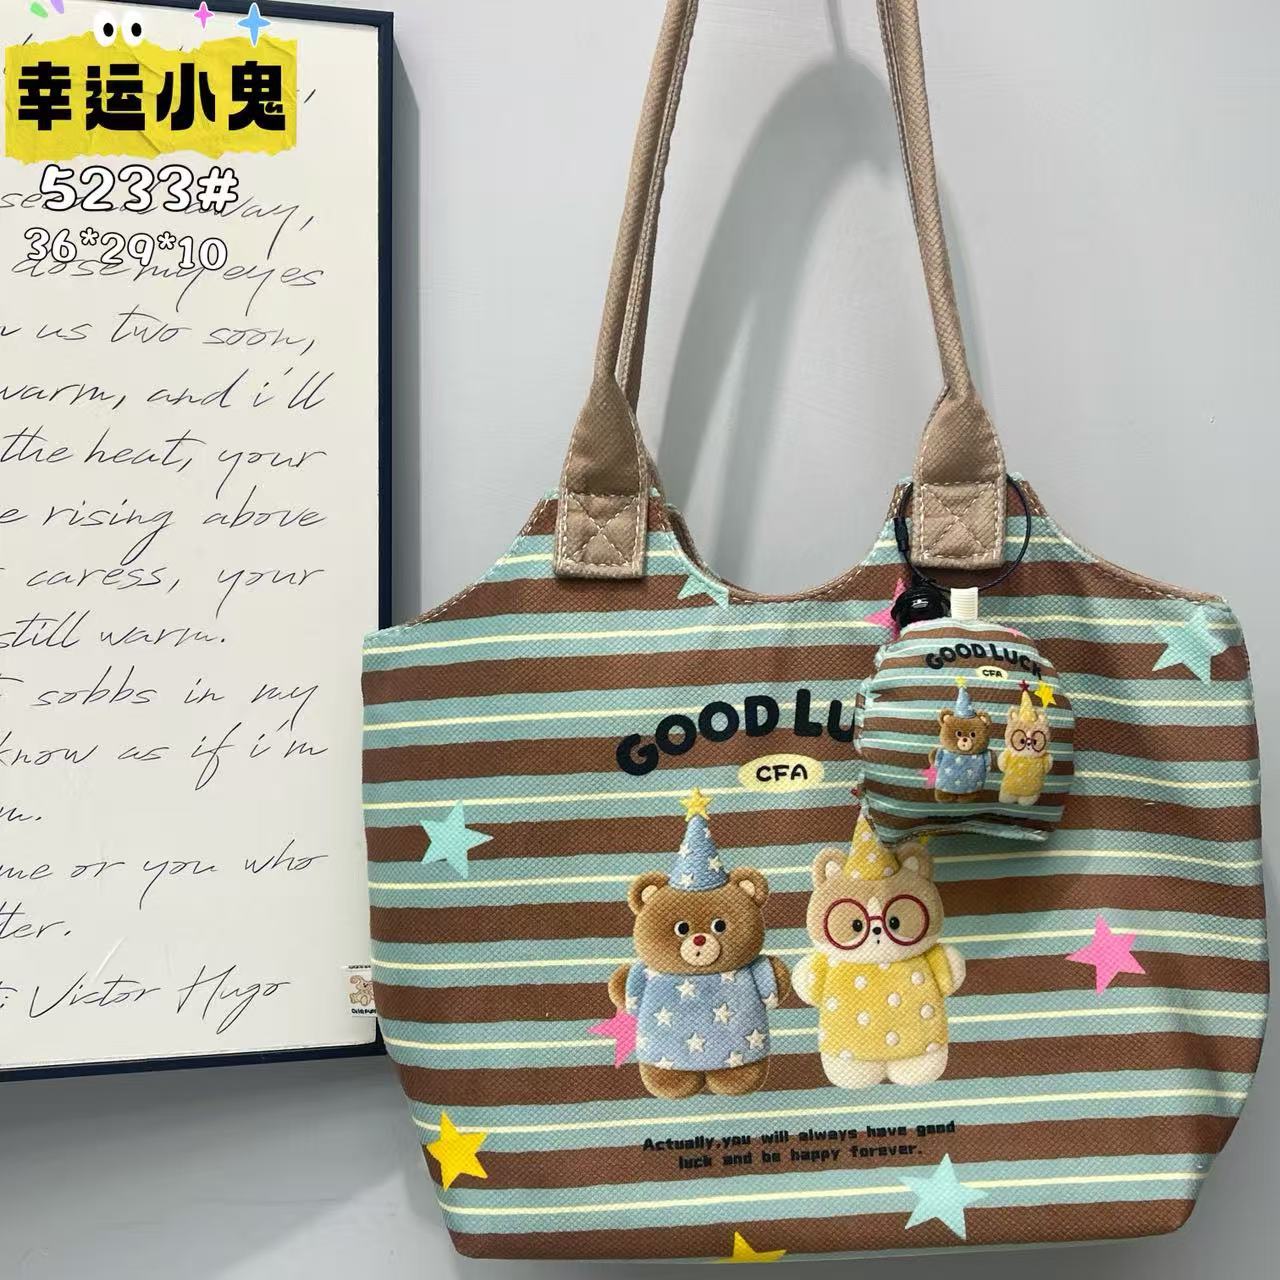 幸运小鬼
5233#
36*29*10
away,
close my eyes
us two soon,
warm, and i'll
the heat, your
rising above
caress, your
still warm.
sobbs in my
know as if i'm
me or you who
Victor Hugo
GOOD LU
CFA
GOOD LUCK
CFA
Actually,you will always have good
luck and be happy forever.